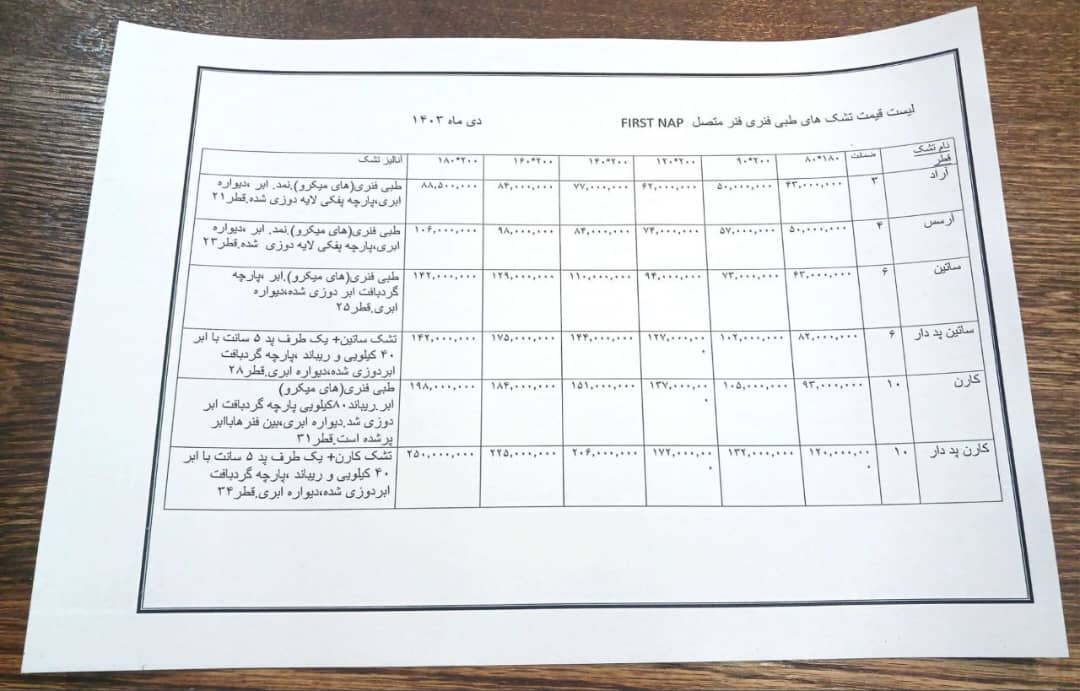 لیست قیمت تشک های طبی فنری فنر متصل FIRST NAP دی ماه ۱۴۰۳
نام تشک قطر ضمانت ۸۰*۱۸۰ ۹۰*۲۰۰ ۱۲۰*۲۰۰ ۱۴۰*۲۰۰ ۱۶۰*۲۰۰ ۱۸۰*۲۰۰ آنالیز تشک
آراد ۳ ۴۳,۰۰۰,۰۰۰ ۵۰,۰۰۰,۰۰۰ ۶۲,۰۰۰,۰۰۰ ۷۷,۰۰۰,۰۰۰ ۸۴,۰۰۰,۰۰۰ ۸۸,۵۰۰,۰۰۰ طبی فنری(های میکرو).نمد. ابر ،دیواره
ابری،پارچه پفکی لایه دوزی شده.قطر۲۱
ارسس ۴ ۵۰,۰۰۰,۰۰۰ ۵۷,۰۰۰,۰۰۰ ۷۴,۰۰۰,۰۰۰ ۸۴,۰۰۰,۰۰۰ ۹۸,۰۰۰,۰۰۰ ۱۰۶,۰۰۰,۰۰۰ طبی فنری(های میکرو).نمد. ابر ،دیواره
ابری،پارچه پفکی لایه دوزی شده.قطر۲۳
ساتین ۶ ۶۳,۰۰۰,۰۰۰ ۷۳,۰۰۰,۰۰۰ ۹۴,۰۰۰,۰۰۰ ۱۱۰,۰۰۰,۰۰۰ ۱۲۹,۰۰۰,۰۰۰ ۱۴۲,۰۰۰,۰۰۰ طبی فنری(های میکرو).ابر ،پارچه
گردبافت ابر دوزی شده،دیواره
ابری.قطر۲۵
ساتین پد دار ۶ ۸۲,۰۰۰,۰۰۰ ۱۰۲,۰۰۰,۰۰۰ ۱۲۷,۰۰۰,۰۰۰ ۱۴۴,۰۰۰,۰۰۰ ۱۷۵,۰۰۰,۰۰۰ ۱۴۲,۰۰۰,۰۰۰ تشک ساتین+ یک طرف پد ۵ سانت با ابر
۴۰ کیلویی و ریباند ،پارچه گردبافت
ابردوزی شده،دیواره ابری.قطر۲۸
کارن ۱۰ ۹۳,۰۰۰,۰۰۰ ۱۰۵,۰۰۰,۰۰۰ ۱۳۷,۰۰۰,۰۰۰ ۱۵۱,۰۰۰,۰۰۰ ۱۸۴,۰۰۰,۰۰۰ ۱۹۸,۰۰۰,۰۰۰ طبی فنری(های میکرو)
ابر.ریباند۸۰کیلویی پارچه گردبافت ابر
دوزی شد.دیواره ابری،بین فنرهاباابر
پرشده است.قطر۳۱
کارن پد دار ۱۰ ۱۲۰,۰۰۰,۰۰۰ ۱۳۲,۰۰۰,۰۰۰ ۱۷۲,۰۰۰,۰۰۰ ۲۰۶,۰۰۰,۰۰۰ ۲۲۵,۰۰۰,۰۰۰ ۲۵۰,۰۰۰,۰۰۰ تشک کارن+ یک طرف پد ۵ سانت با ابر
۴۰ کیلویی و ریباند ،پارچه گردبافت
ابردوزی شده،دیواره ابری.قطر۳۴